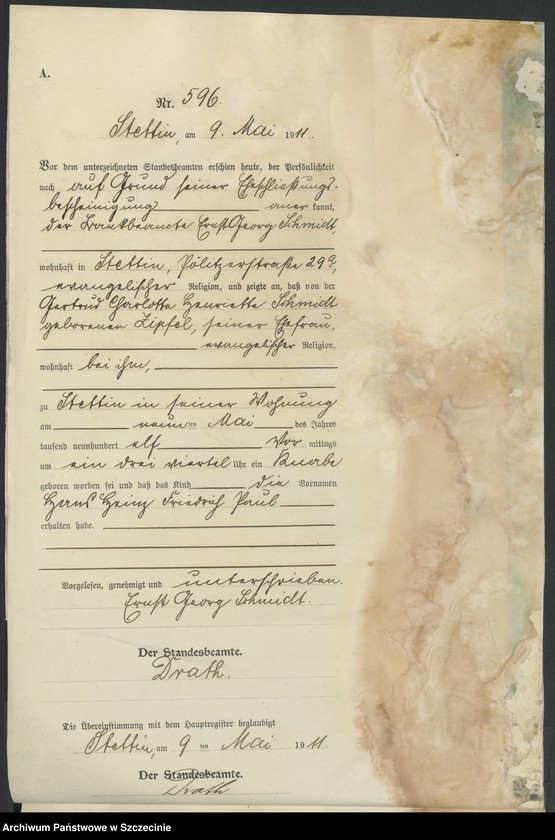 A.
Nr. 596.
Stettin, am 9. Mai 1911.
Vor dem unterzeichneten Standesbeamten erschien heute, der Persönlichkeit
nach auf Grund seiner Eheschließungs-
bescheinigung anerkannt,
der Bankbeamte Ernst Georg Schmidt,
wohnhaft in Stettin, Pölitzerstraße 29a,
evangelischer Religion, und zeigte an, daß von der
Gertrud Charlotte Henriette Schmidt
geborenen Zipfel, seiner Ehefrau,
evangelischer Religion,
wohnhaft bei ihm,
zu Stettin in seiner Wohnung
am neunten Mai des Jahres
tausend neunhundert elf Vormittags
um ein drei viertel Uhr ein Knabe
geboren worden sei und daß das Kind die Vornamen
Hans Heinz Friedrich Paul
erhalten habe.
Vorgelesen, genehmigt und unterschrieben.
Ernst Georg Schmidt.
Der Standesbeamte.
Drath.
Die Übereinstimmung mit dem Hauptregister beglaubigt
Stettin, am 9ten Mai 1911.
Der Standesbeamte.
Drath
Archiwum Państwowe w Szczecinie